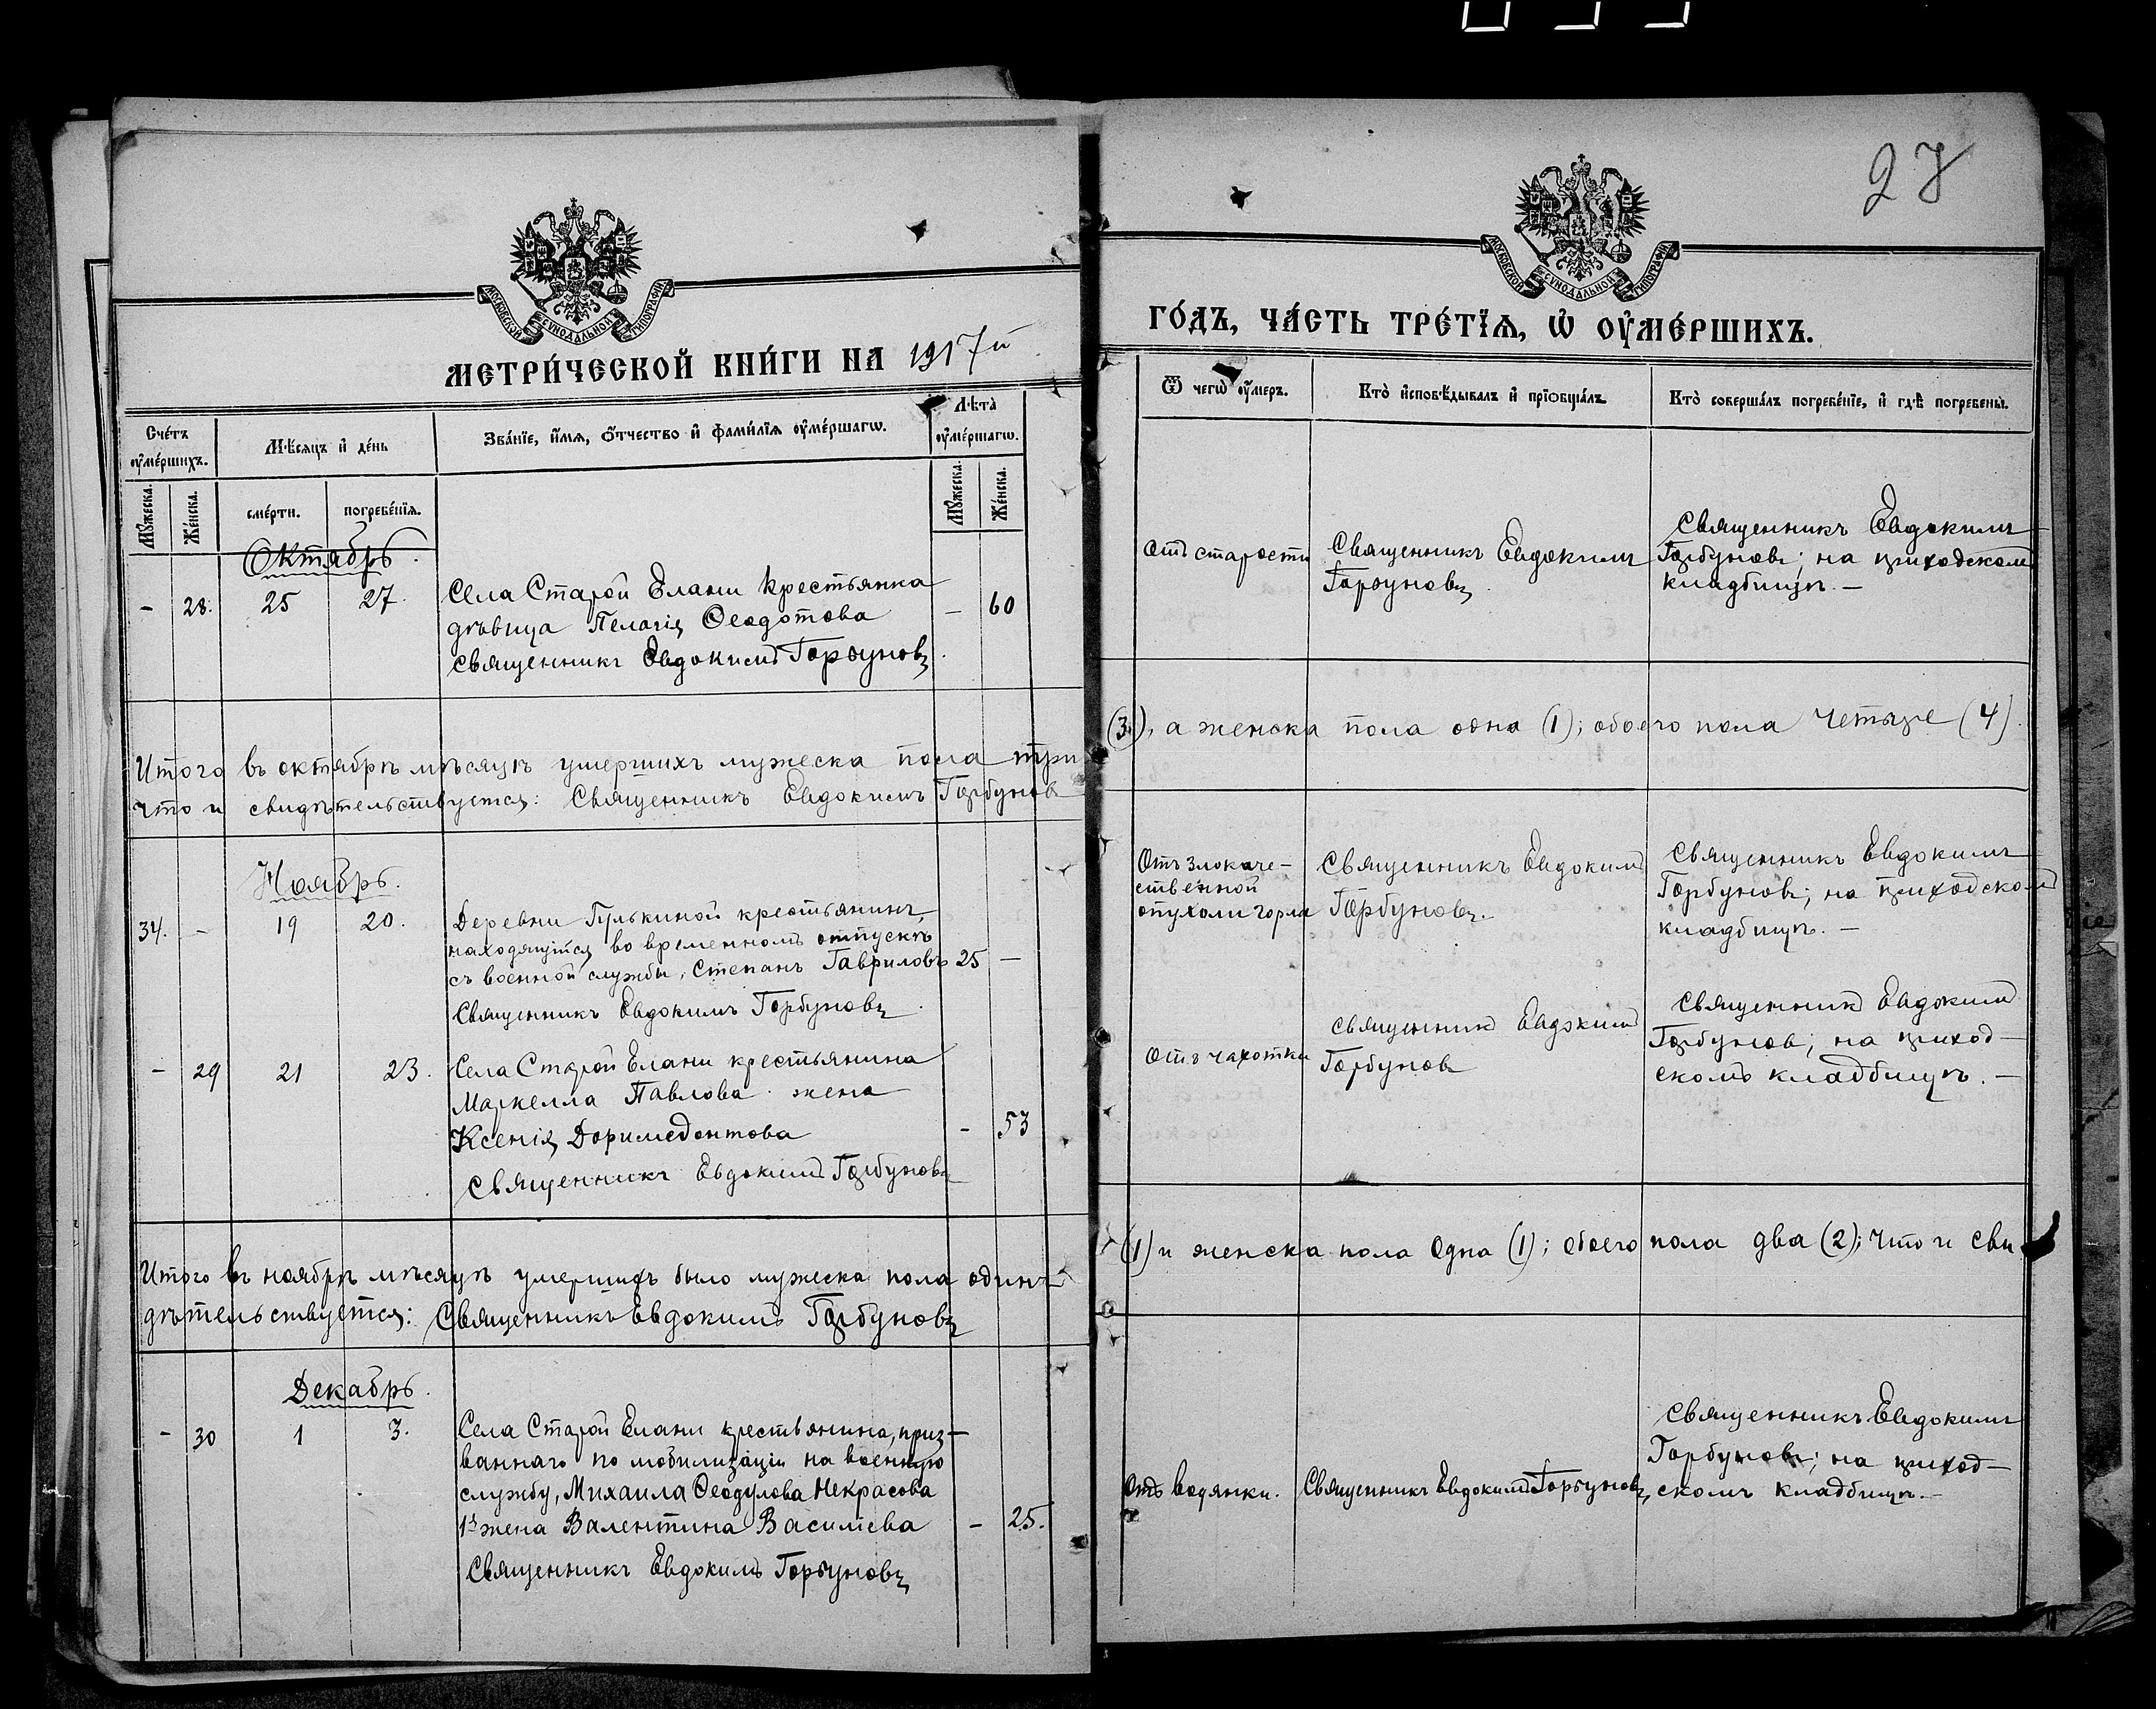 27
МОСКОВСКОЙ СѴНОДАЛЬНОЙ ТИПОГРАФІИ
МЕТРИ́ЧЕСКОЙ КНИ́ГИ НА 1917й
Сче́тъ ᲂу҆ме́ршихъ.
Мѣ́сяцъ и҆ де́нь
Зва́нїе, и҆́мѧ, ѻ҆́тчество и҆ фами́лїѧ ᲂу҆ме́ршагѡ.
Лѣ́та ᲂу҆ме́ршагѡ.
Мꙋ́жеска.
Же́нска.
сме́рти.
погребе́нїѧ.
Мꙋ́жеска.
Же́нска.
Октябрь.
- 28. 25 27.
Села Старой Елани крестьянка
дѣвица Пелагія Ѳеодотова
- 60
Священникъ Евдокимъ Горбуновъ.
Итого въ октябрѣ мѣсяцѣ умершихъ мужеска пола три
что и свидѣтельствуется: Священникъ Евдокимъ Горбуновъ
Ноябрь.
34. - 19 20.
Деревни Гулькиной крестьянинъ,
находящійся во временномъ отпускѣ
съ военной службы, Степанъ Гавриловъ
25 —
Священникъ Евдокимъ Горбуновъ.
- 29 21 23.
Села Старой Елани крестьянина
Маркелла Павлова жена
Ксенія Доримедонтова
- 53
Священникъ Евдокимъ Горбуновъ
Итого въ ноябрѣ мѣсяцѣ умершихъ было мужеска пола одинъ
дѣтельствуется: Священникъ Евдокимъ Горбуновъ
Декабрь.
- 30 1 3.
Села Старой Елани крестьянина, приз-
ваннаго по мобилизаціи на военную
службу, Михаила Ѳеодулова Некрасова
1я жена Валентина Василіева
- 25.
Священникъ Евдокимъ Горбуновъ
МОСКОВСКОЙ СѴНОДАЛЬНОЙ ТИПОГРАФІИ
ГО́ДЪ, ЧА́СТЬ ТРЕ́ТЇѦ, Ѡ҆ ОУ҆МЕ́РШИХЪ.
Ѿ чегѡ̀ ᲂу҆́меръ.
Кто̀ и҆сповѣ́дывалъ и҆ прїѡбща́лъ.
Кто̀ соверша́лъ погребе́нїе, и҆ гдѣ̀ погребены̀.
Отъ старости
Священникъ Евдокимъ
Горбуновъ.
Священникъ Евдокимъ
Горбуновъ; на приходскомъ
кладбищѣ. —
(3), а женска пола одна (1); обоего пола четыре (4).
Отъ злокаче-
ственной
опухоли горла
Священникъ Евдокимъ
Горбуновъ.
Священникъ Евдокимъ
Горбуновъ; на приходскомъ
кладбищѣ. —
Отъ чахотки
Священникъ Евдокимъ
Горбуновъ
Священникъ Евдокимъ
Горбуновъ; на приход-
скомъ кладбищѣ. —
(1) и женска пола одна (1); обоего пола два (2); что и сви-
Отъ водянки.
Священникъ Евдокимъ Горбуновъ
Священникъ Евдокимъ
Горбуновъ; на приход-
скомъ кладбищѣ. —